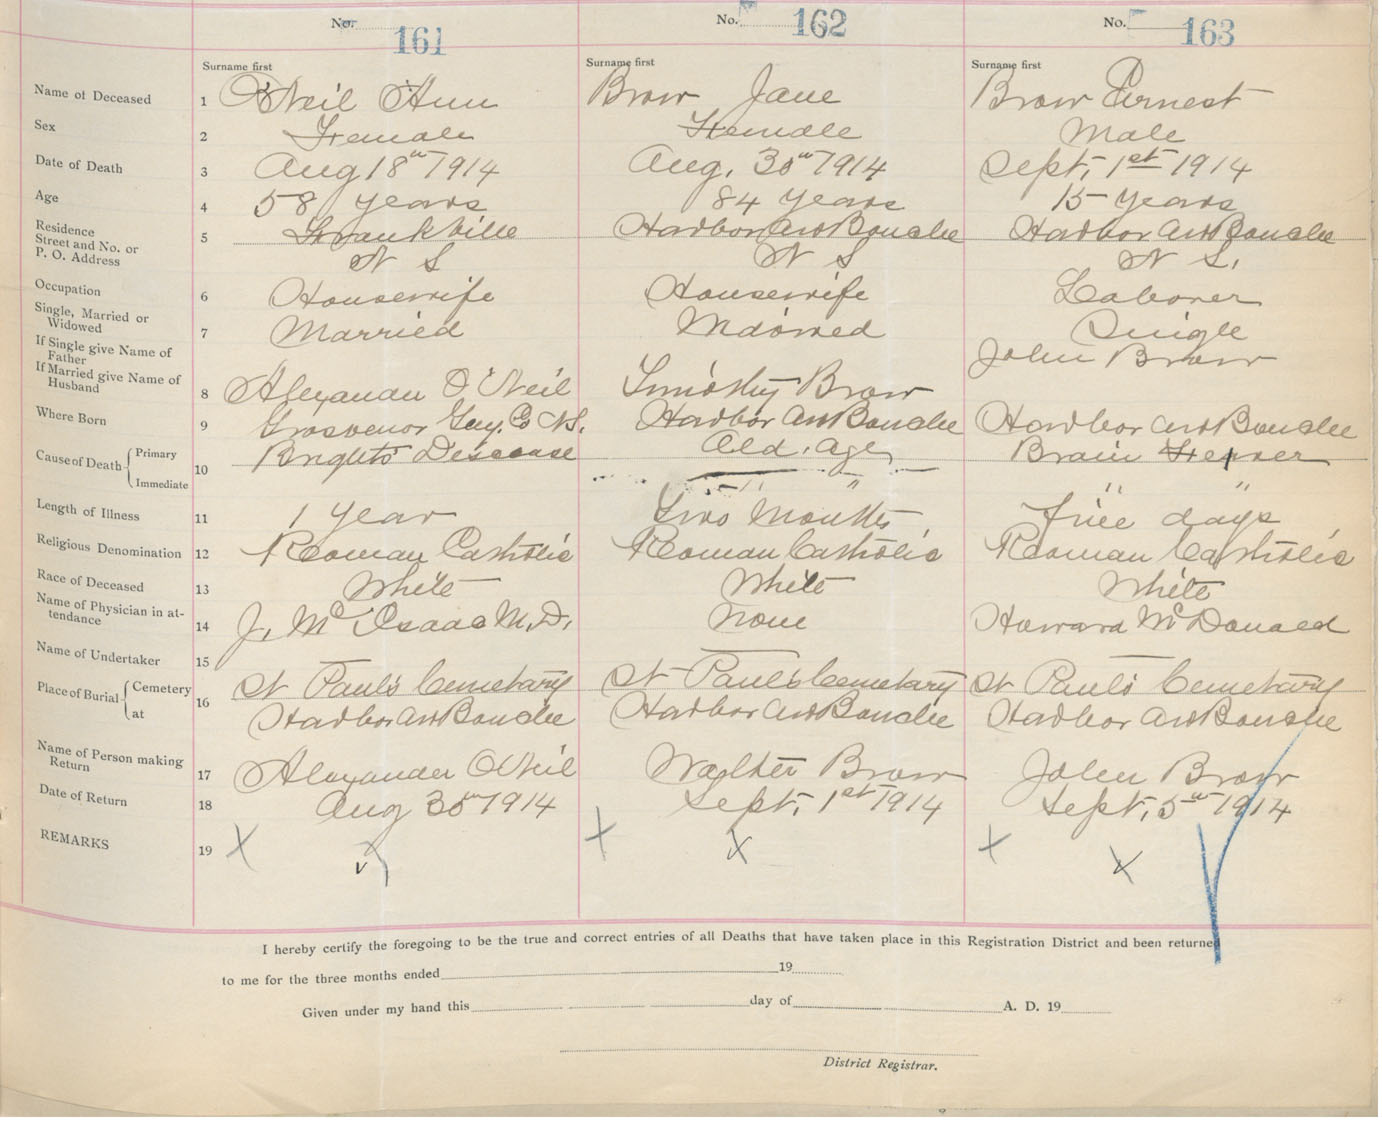 No. 161 No. 162 No. 163
Surname first Surname first Surname first
Name of Deceased 1 O'Neil Ann Brow Jane Brow Ernest
Sex 2 Female Female Male
Date of Death 3 Aug 18th 1914 Aug. 30th 1914 Sept. 1st 1914
Age 4 58 years 84 years 15 years
Residence
Street and No. or
P. O. Address 5 Frankville Harbor Au Bouche Harbor Au Bouche
N S N S N S.
Occupation 6 Housewife Housewife Laborer
Single, Married or
Widowed 7 Married Widowed Single
If Single give Name of
Father John Brow
If Married give Name of
Husband 8 Alexander O'Neil Timothy Brow
Where Born 9 Grosvenor Guy. Co NS. Harbor Au Bouche Harbor Au Bouche
Cause of Death Primary
Immediate 10 Brights Disease Old Age Brain Fever
" " " "
Length of Illness 11 1 year Two Months five days
Religious Denomination 12 Roman Catholic Roman Catholic Roman Catholic
Race of Deceased 13 White White White
Name of Physician in at-
tendance 14 J. Mc Isaac M.D. None Howard McDonald
Name of Undertaker 15 — — —
Place of Burial Cemetery
at 16 St Paul's Cemetary St Paul's Cemetary St Paul's Cemetary
Harbor Au Bouche Harbor Au Bouche Harbor Au Bouche
Name of Person making
Return 17 Alexander O'Neil Walter Brow John Brow
Date of Return 18 Aug 30th 1914 Sept. 1st 1914 Sept. 5th 1914
REMARKS 19 X X X X X
I hereby certify the foregoing to be the true and correct entries of all Deaths that have taken place in this Registration District and been returned
to me for the three months ended 19
Given under my hand this day of A. D. 19
District Registrar.